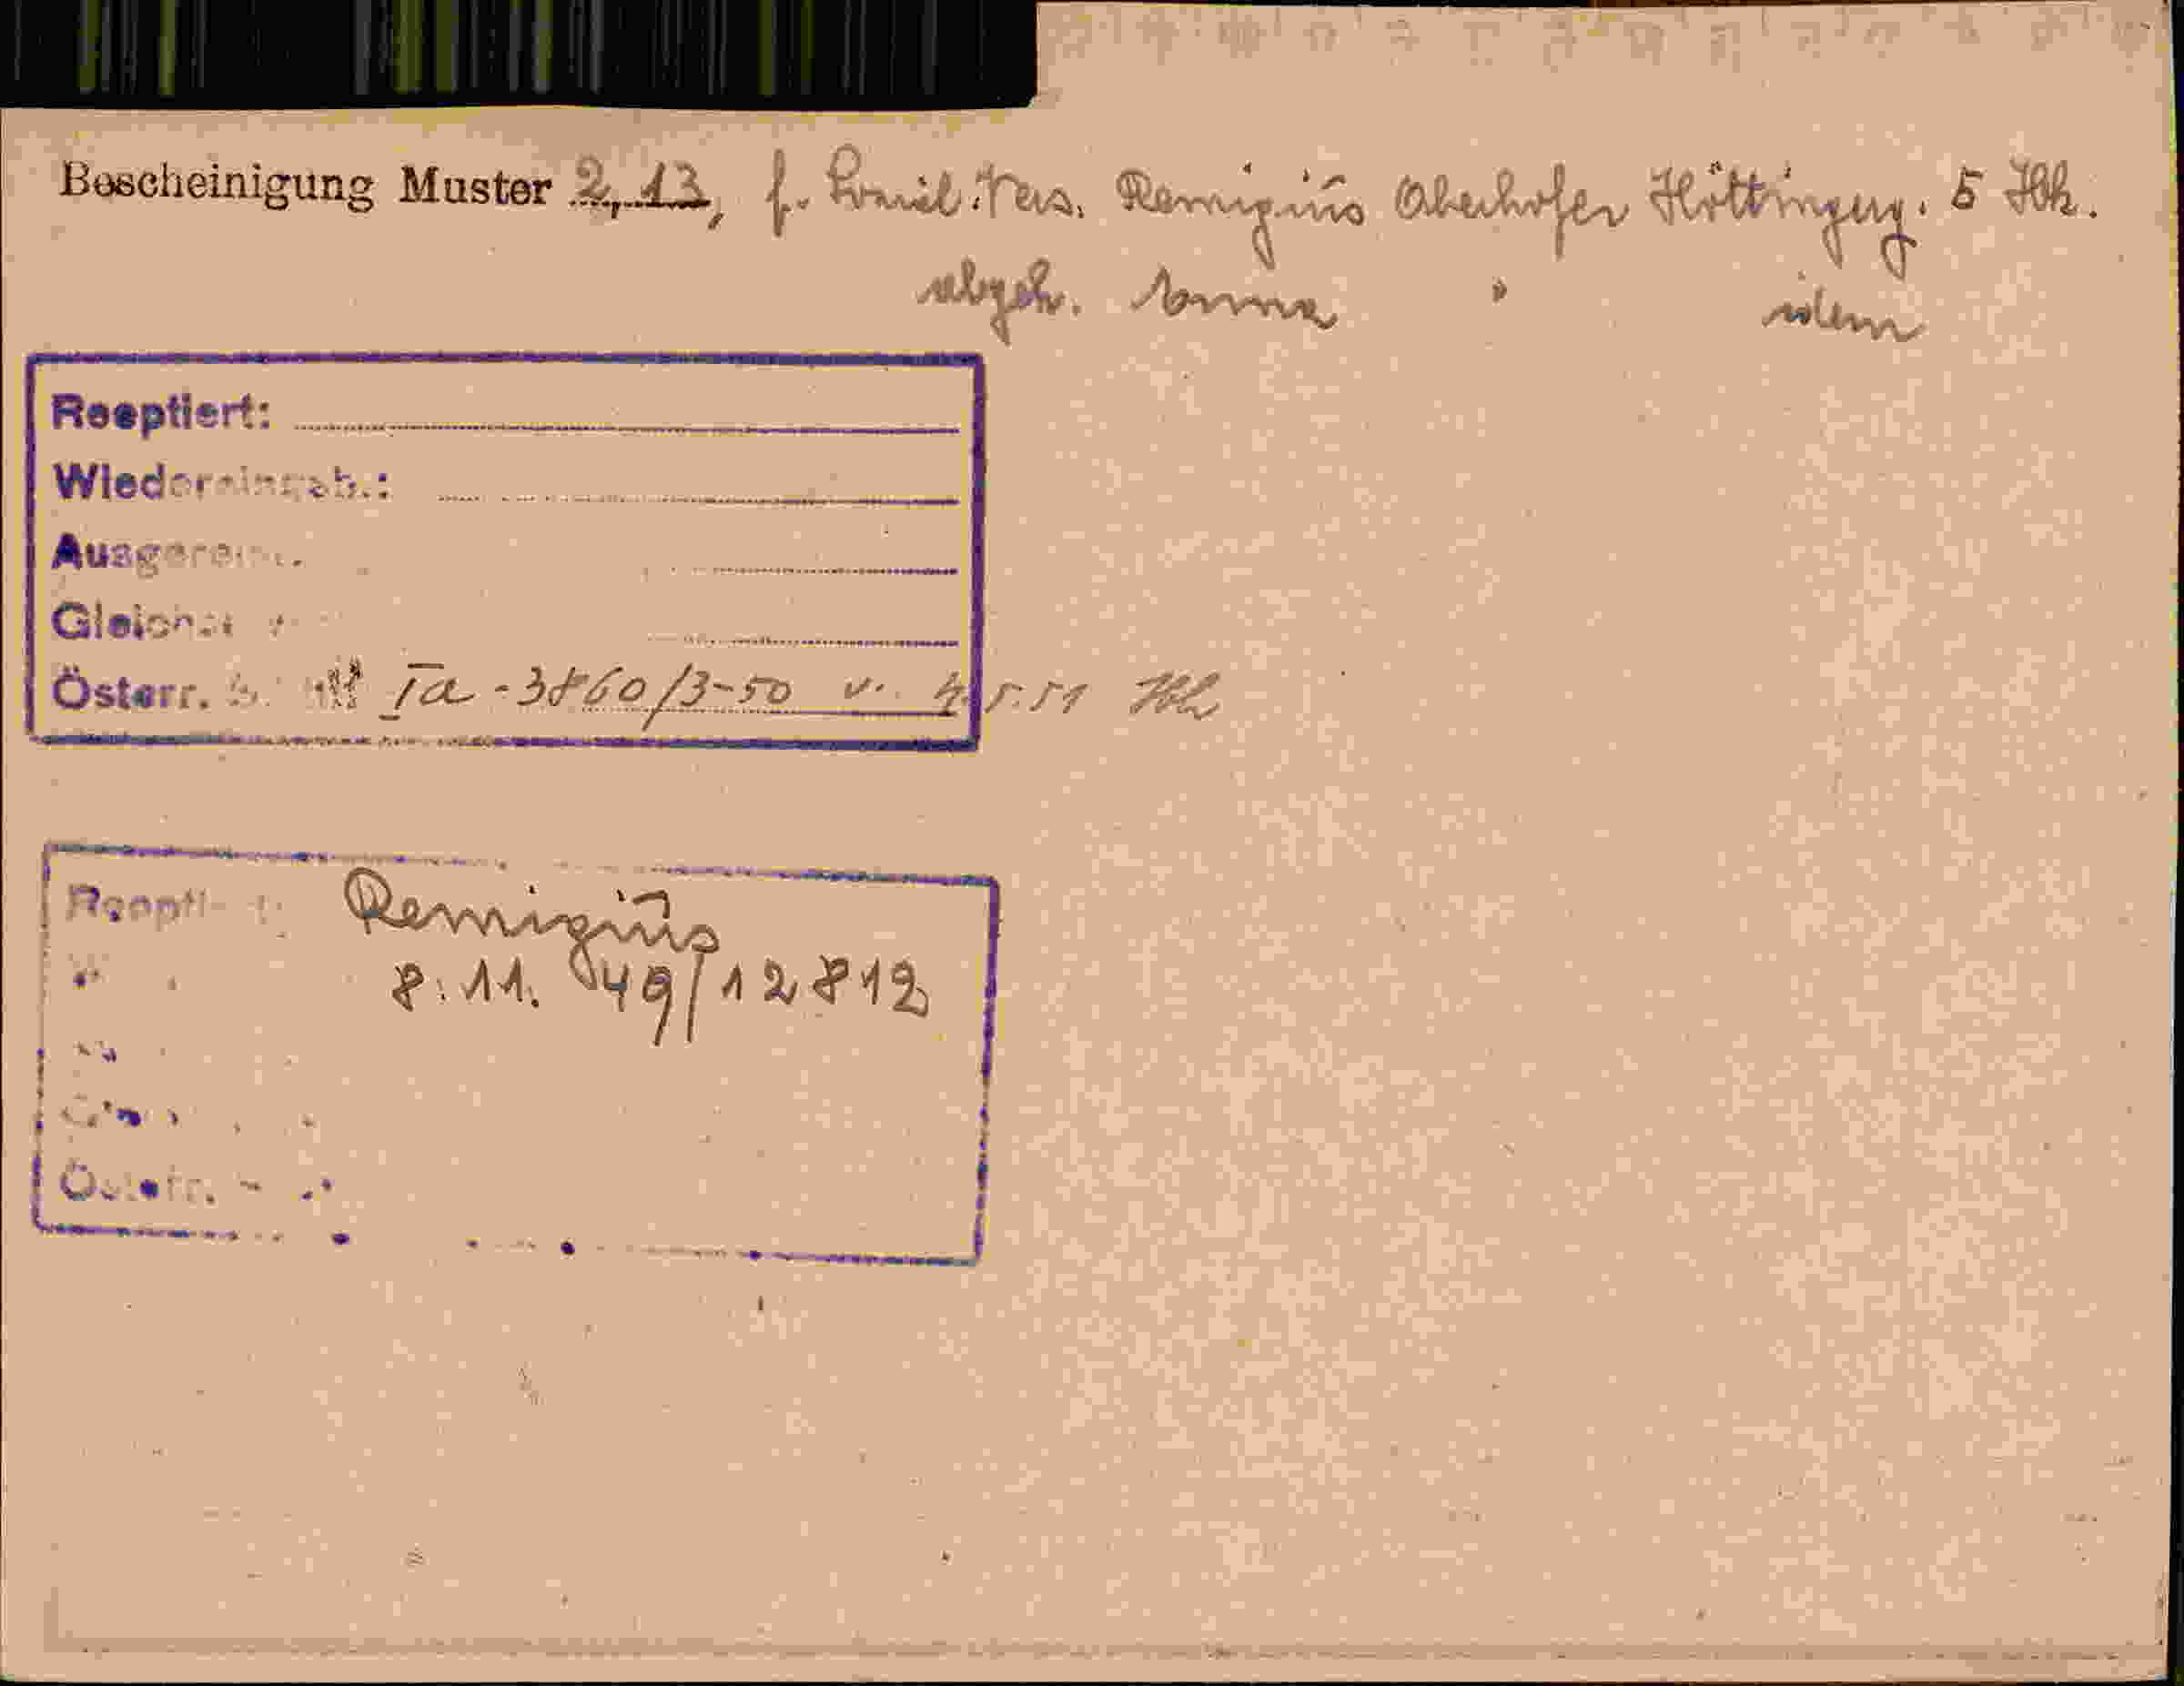 Bescheinigung Muster 2, 13, f. Remigius Oberhofer Höttingerg. 5 Ibk.
abgeh. Anna " idem
Reoptiert:
Wiedereingeb.:
Ausgereist
Gleichst
Österr. Ia - 3860/3-50 v. 4.5.51
Reopti
Remigius
8.11.49/12812
Österr.